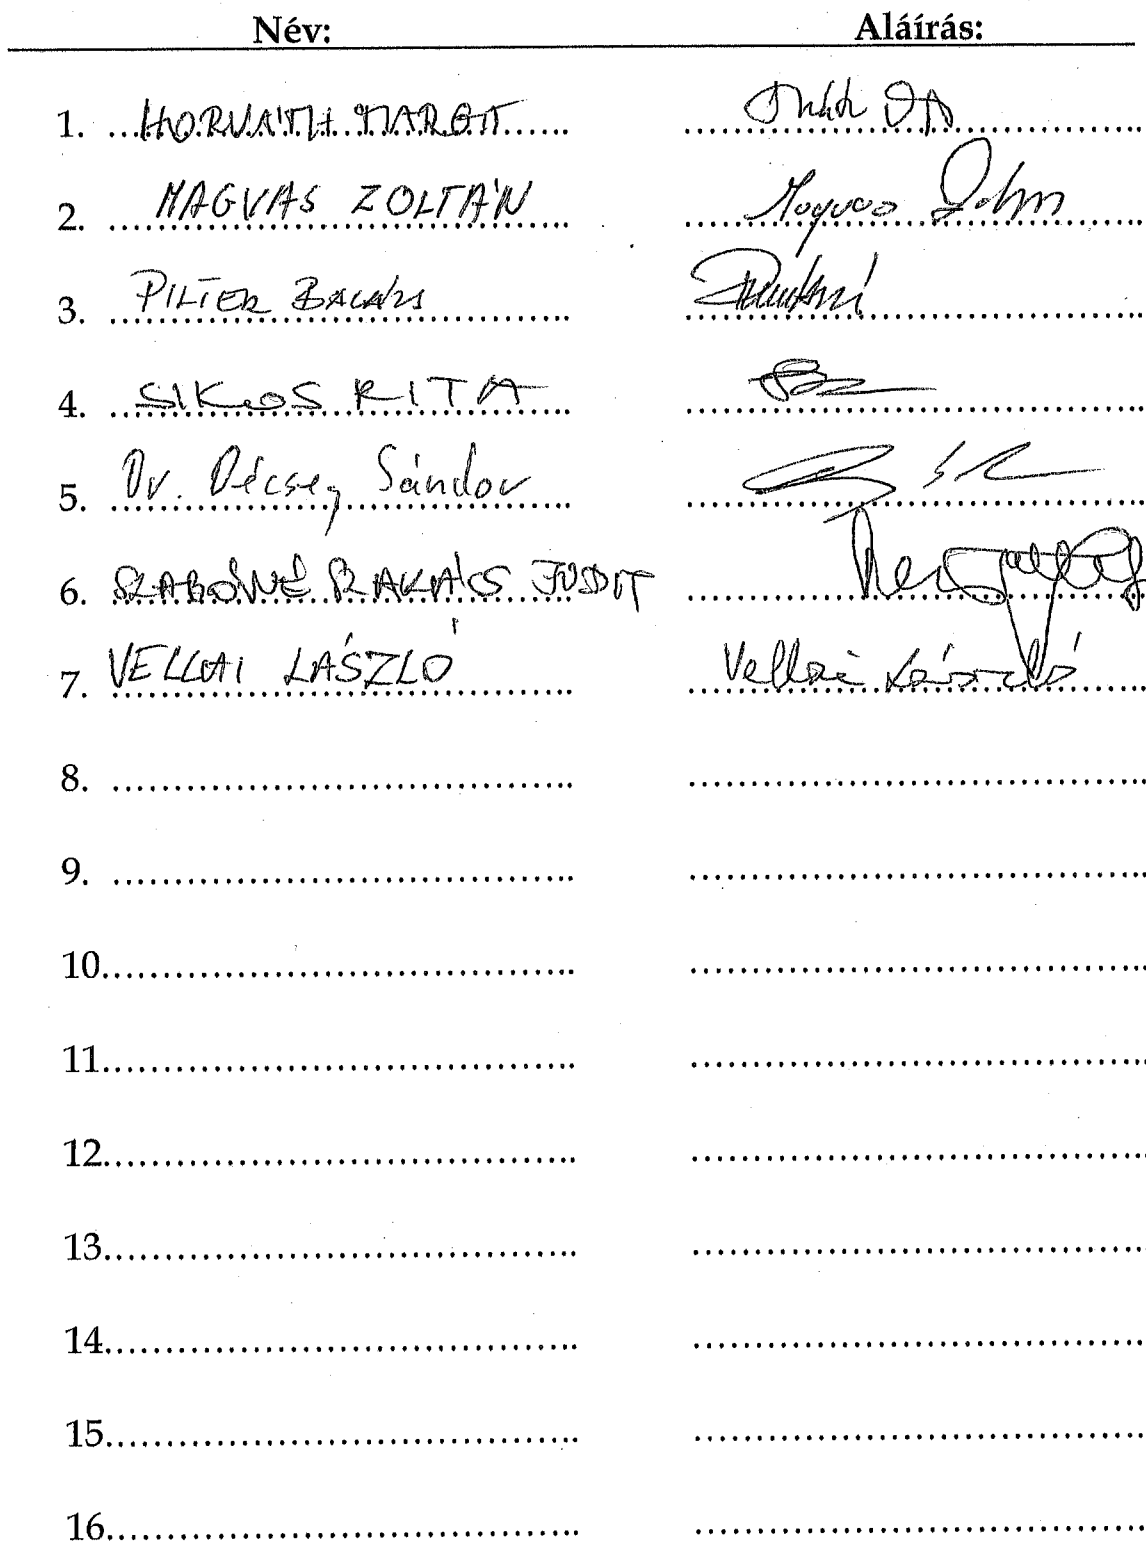 Név: Aláírás:
1. HORVÁTH MARGIT
2. MAGVAS ZOLTÁN Magvas Zoltán
3. PILTER BALÁZS
4. SIKOS RITA
5. Dr. Sándor
6. SZABÓNÉ JUDIT
7. VELLAI LÁSZLÓ Vellai László
8.
9.
10.
11.
12.
13.
14.
15.
16.